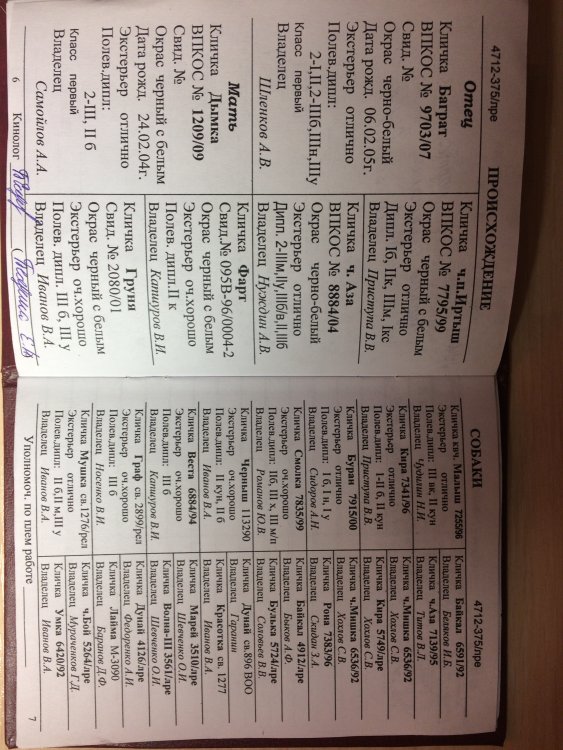 4712-375/пре
ПРОИСХОЖДЕНИЕ
Отец
Кличка Баграт
ВПКОС № 9703/07
Свид. №
Окрас черно-белый
Дата рожд. 06.02.05г.
Экстерьер отлично
Полев.дипл:
2-I,II,2-IIIб,IIIн,IIIу
Класс первый
Владелец
Шленков А.В.
Мать
Кличка Дымка
ВПКОС № 1209/09
Свид. №
Окрас черный с белым
Дата рожд. 24.02.04г.
Экстерьер отлично
Полев.дипл:
2-III, II б
Класс первый
Владелец
Самойлов А.А.
Кличка ч.п.Иртыш
ВПКОС № 7795/99
Окрас черный с белым
Экстерьер отлично
Дипл. Iб, IIк, IIIм, Iкс
Владелец Приступа В.В.
Кличка ч. Аза
ВПКОС № 8884/04
Окрас черно-белый
Экстерьер отлично
Дипл. 2-IIIм,IIу,IIIб/в,II,IIIб
Владелец Нуждин А.В.
Кличка Фарт
Свид.№ 095В-96/0004-2
Окрас черный с белым
Экстерьер оч.хорошо
Полев. дипл.II к
Владелец Капшуров В.И.
Кличка Груня
Свид. № 2080/01
Окрас черный с белым
Экстерьер оч.хорошо
Полев. дипл. III б, III у
Владелец Иванов В.А.
6 Кинолог
СОБАКИ
4712-375/пре
Кличка квч. Малыш 725596
Экстерьер отлично
Полев.дипл: III вк, II кун
Владелец Чудилин Н.И.
Кличка Кира 7341/96
Экстерьер отлично
Полев.дипл: I-II б, II кун
Владелец Приступа В.В.
Кличка Буран 7915/00
Экстерьер отлично
Полев.дипл: I б, I к, I у
Владелец Сидоров А.Н.
Кличка Смолка 7835/99
Экстерьер оч.хорошо
Полев.дипл: IIб, III х, III м/п
Владелец Романов Ю.В.
Кличка Черныш 113290
Экстерьер оч.хорошо
Полев.дипл: II кун, II б
Владелец Иванов В.А.
Кличка Веста 6884/94
Экстерьер оч.хорошо
Полев.дипл: III б
Владелец Капшуров В.И.
Кличка Граф св. 2899/рел
Экстерьер оч.хорошо
Полев.дипл: III б
Владелец Носенко В.И.
Кличка Мушка св.1276/рел
Экстерьер отлично
Полев.дипл: II б,II м,III у
Владелец Иванов В.А.
Кличка Байкал 6591/92
Владелец Беляков Н.Б.
Кличка ч.Аза 7139/95
Владелец Титов В.Л.
Кличка ч.Мишка 6536/92
Владелец Хохлов С.В.
Кличка Кира 5749/лре
Владелец Хохлов С.В.
Кличка ч.Мишка 6536/92
Владелец Хохлов С.В.
Кличка Рона 7383/96
Владелец Скидан З.А.
Кличка Байкал 4912/лре
Владелец Быков А.Ф.
Кличка Булька 5724/лре
Владелец Соловьев В.В.
Кличка Дунай св.896 ВОО
Владелец Гаранин
Кличка Красотка св. 1277
Владелец Иванов В.А.
Кличка Марей 3510/лре
Владелец Шевченко О.И.
Кличка Волна-III 3561/лре
Владелец Шевченко О.И.
Кличка Дунай 4126/лре
Владелец Федоренко А.И.
Кличка Лайма М-3090
Владелец Баранов Д.Ф.
Кличка ч.Бой 5264/лре
Владелец Мураченков Г.Д.
Кличка Умка 6420/92
Владелец Иванов В.А.
Уполномоч. по плем работе
7